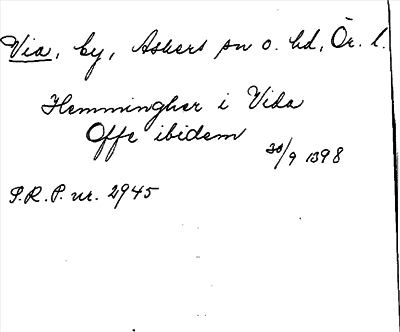 Via, by, Askers sn o. hd, Ör. l.
Hemmingher i Vida
Offe ibidem
30/9 1398
S.R.P. nr. 2945